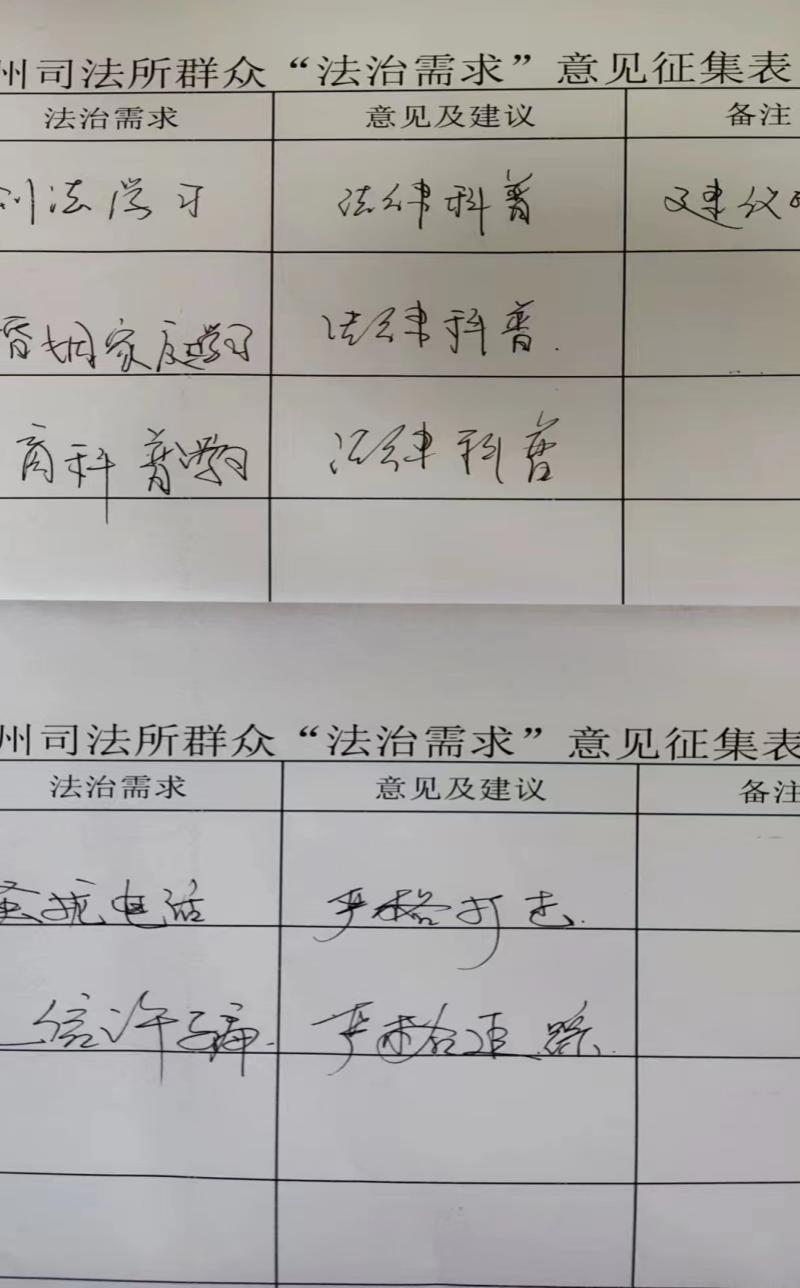 州司法所群众“法治需求”意见征集表
法治需求 意见及建议 备注
法学习 法律科普 建议
婚姻家庭学习 法律科普.
商科普学习 法律科普
州司法所群众“法治需求”意见征集表
法治需求 意见及建议 备注
骚扰电话 严格打击.
信诈骗. 严格追踪.